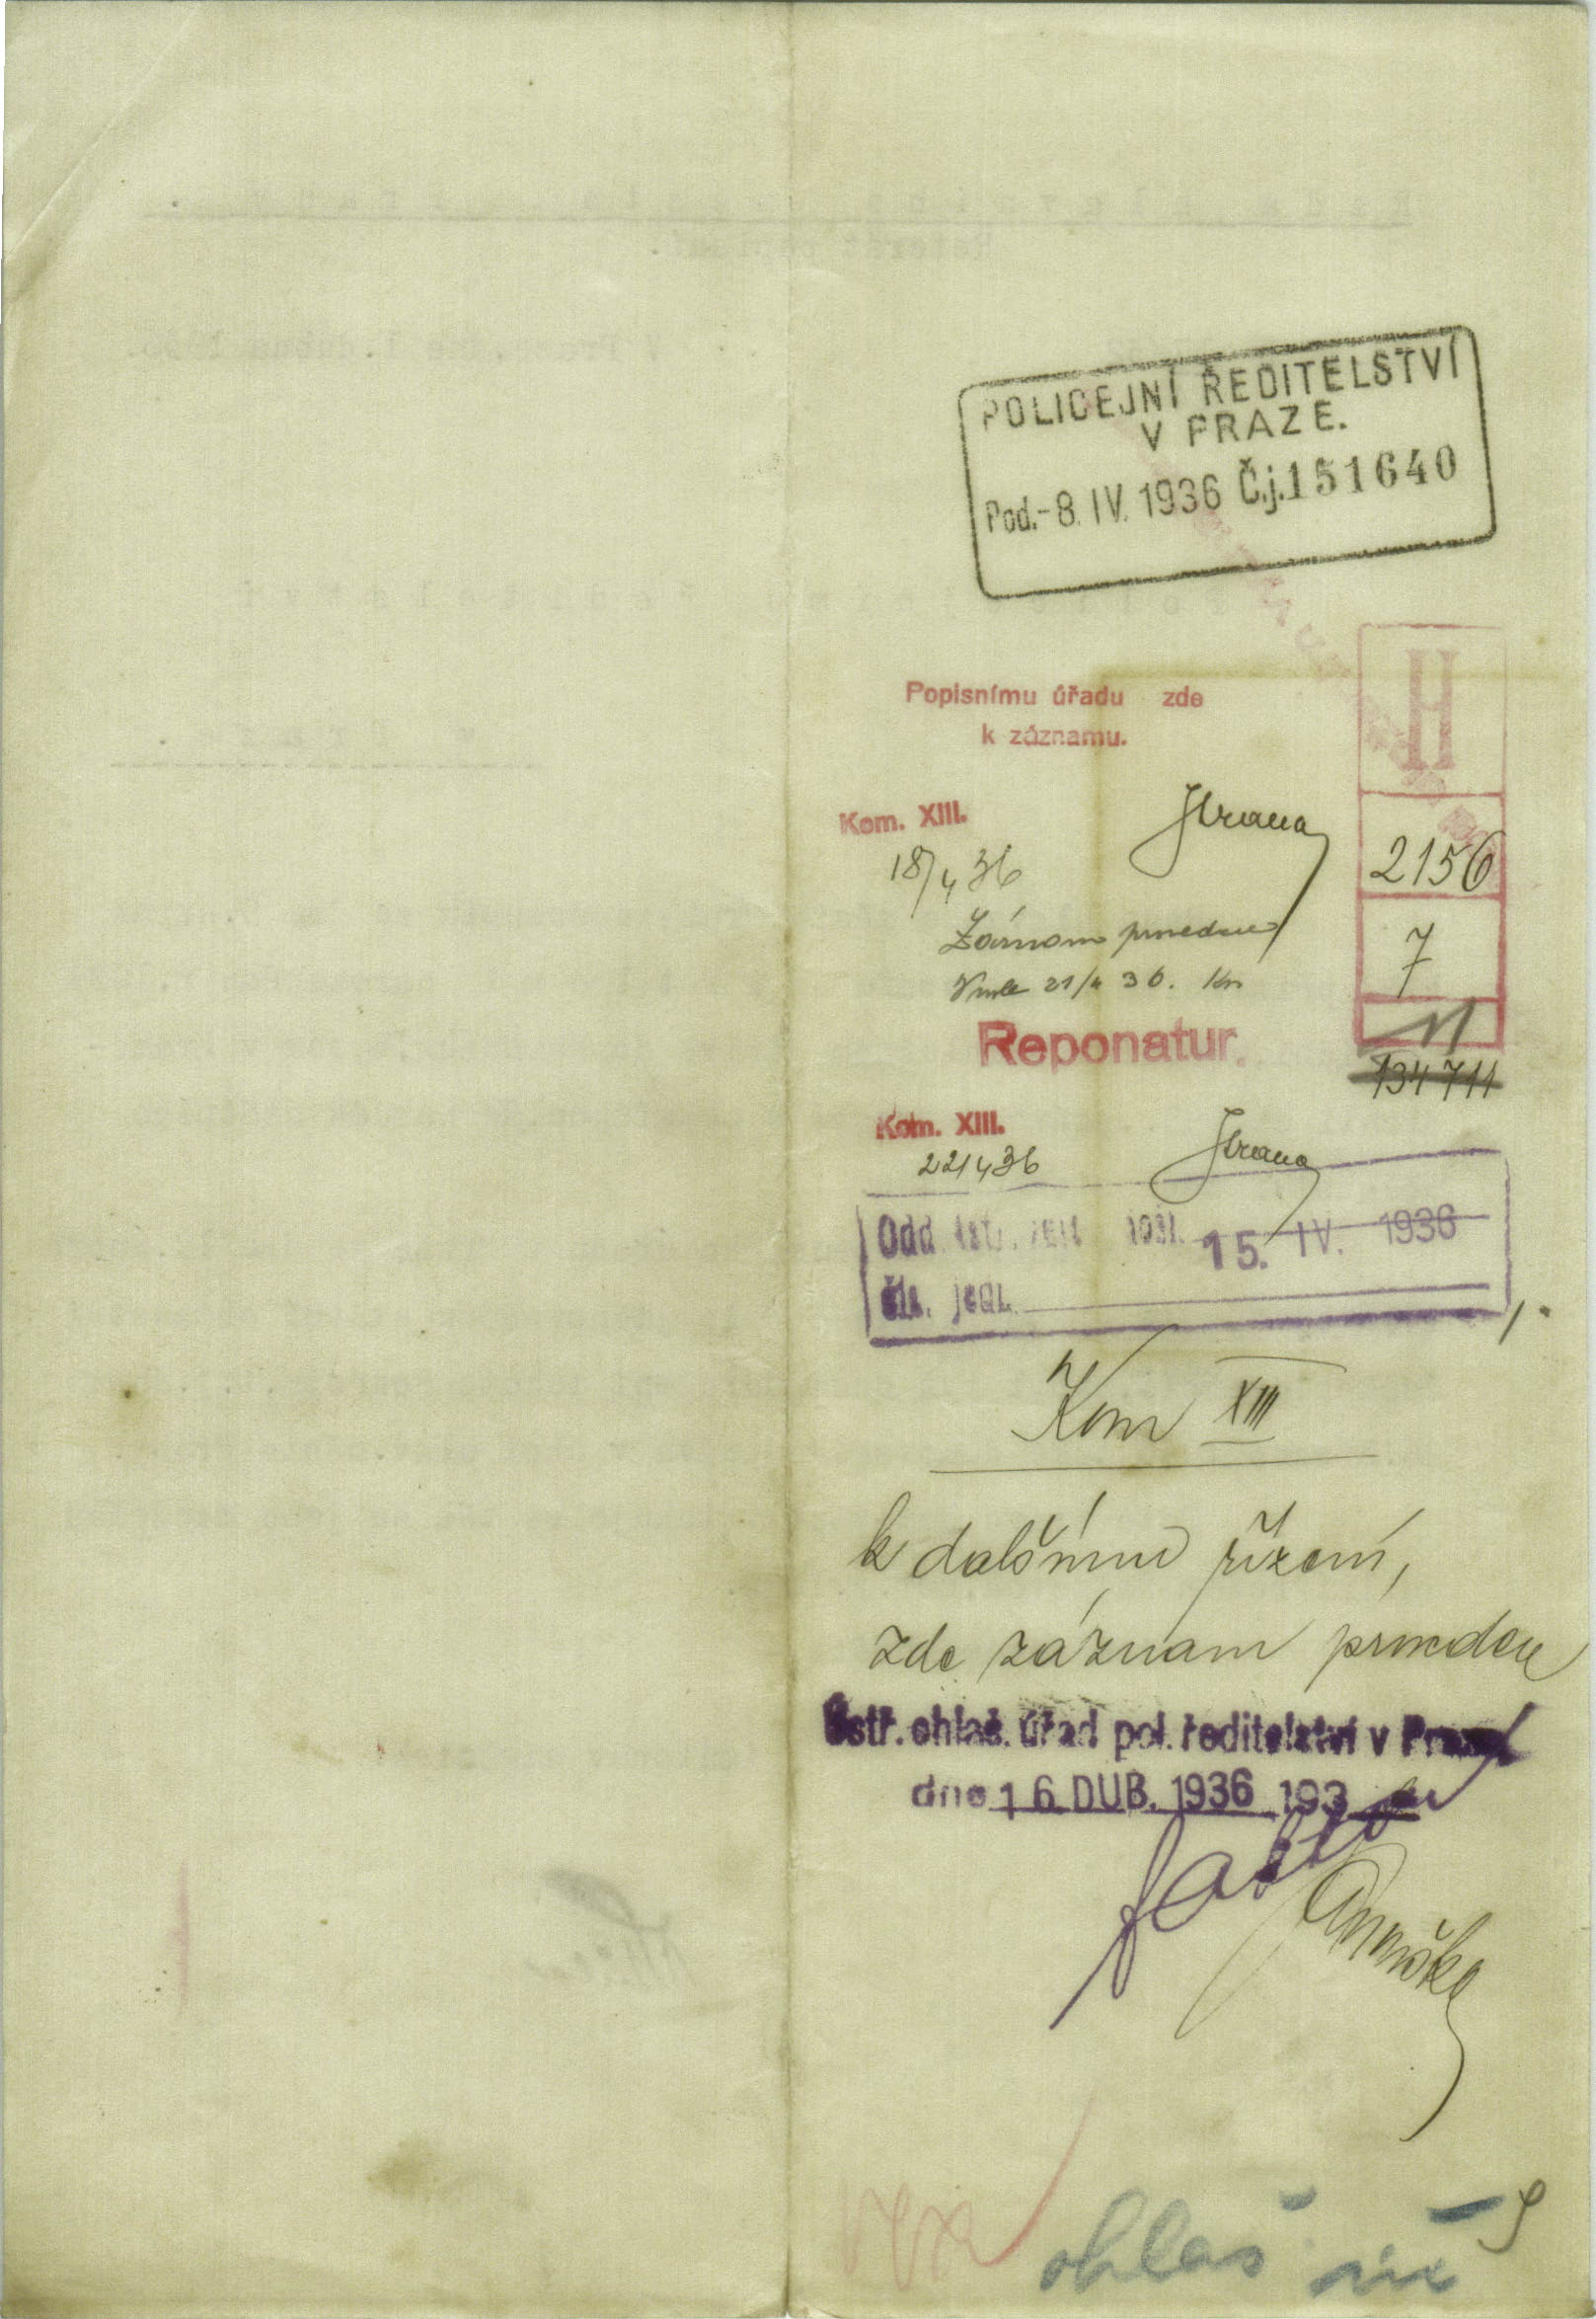 POLICEJNÍ ŘEDITELSTVÍ
V PRAZE.
Pod.-8. IV. 1936 Č.j.151640
H
Popisnímu úřadu zde
k záznamu.
Kom. XIII.
2156
18/4 36
Záznam proveden
7
21/4 36. Kn
Reponatur.
11
134711
Kom. XIII.
22/4 36
Odd. 15. IV. 1936
Čís. jedn.
Kom XIII
k dalšímu řízení,
zde záznam proveden
Ústř. ohlaš. úřad pol. ředitelství v Praze
dne 16 DUB. 1936 193
ohlaš